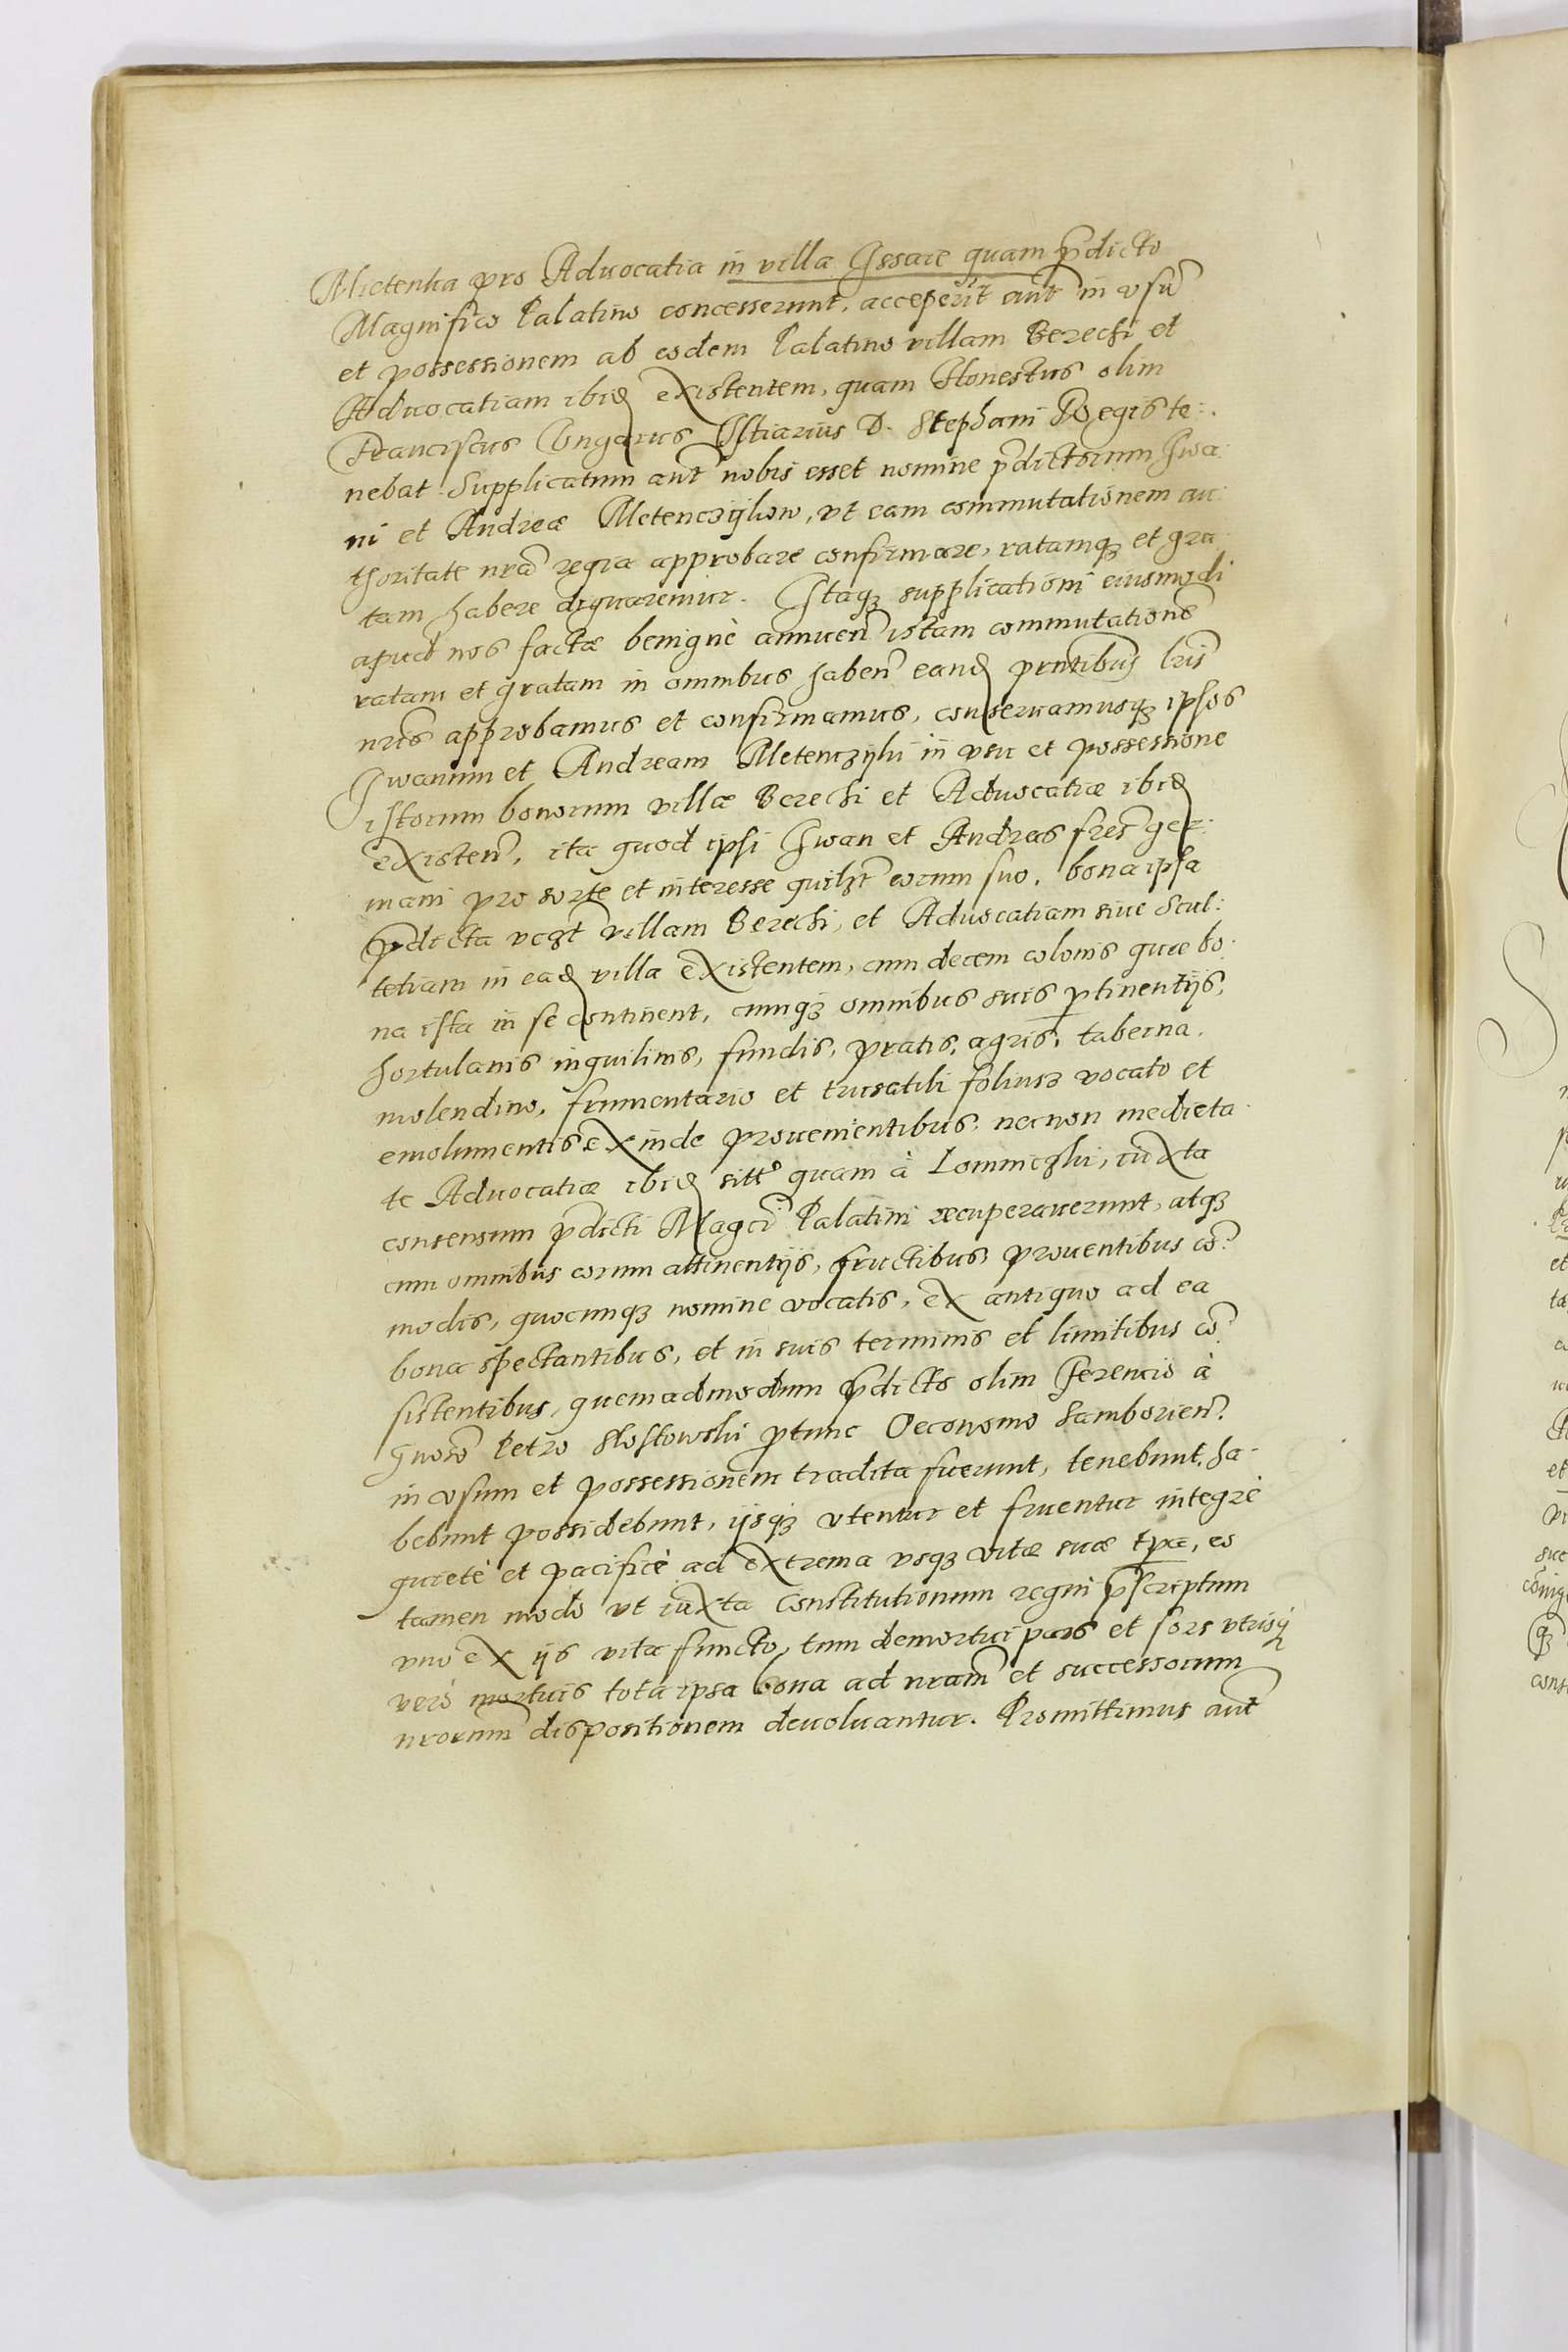 Mictenka pro Advocatia in villa Issaie quam p̃dicto
Magnifico Palatino concesserunt, acceperit aut̃ in vsũ
et possessionem ab eodem Palatino villam Berechi et
Advocatiam ibid existentem, quam Honestus olim
Franciscus Ungarus Ostiarius D. Stephani Regis te:
nebat. Supplicatum aut̃ nobis esset nomine p̃dictorum Iwa:
ni et Andreæ Metenczijkow, vt eam commutationem au:
thoritate nrã regia approbare confirmare, ratamqȝ et gra
tam habere dignaremur. Itaqȝ supplicationi eiusmodi
apud nos factæ benignè annuen̄ istam commutationẽ
ratam et gratam in omnibus haben̄ eand prñtibus lris̃
nris̃ approbamus et confirmamus, conseruamusqȝ ipsos
Iwanum et Andream Metenczijki in vsu et possessione
istorum bonorum villæ Berechi et Advocatiæ ibid
existen̄, ita quod ipsi Iwan et Andreas fres̃ ger:
mani pro sorte et interesse quilzt̃ eorum suo, bona ipsa
p̃dicta vcȝt̃ villam Berechi, et Advocatiam siue Scul:
tetiam in ead villa existentem, cum decem colonis quæ bo:
na ista in se continent, cumqȝ omnibus suis ptinentijs,
hortulanis inquilinis, fundis, pratis, agris, taberna.
molendino, frumentario et trusatili foliusz vocato et
emolumentis exinde prouenientibus, necnon medieta
te Advocatiæ ibid sittᵉ quam à Lommiczki, iuxta
consensum p̃dicti Magci̴ Palatini recuperauerunt, atqȝ
cum omnibus eorum attinentijs, fructibus, prouentibus cõ
modis, quocunqȝ nomine vocatis, ex antiquo ad ea
bona spectantibus, et in suis terminis et limitibus cõ
sistentibus, quemadmodum p̃dicto olim Ferencio à
Gnoso Petro Slostowski ptunc Oeconomo Samborien̄.
in vsum et possessionem tradita fuerunt, tenebunt, ha:
bebunt possidebunt, ijsqȝ vtentur et fruentur integrè
quietè et pacificè ad extrema vsqȝ vitæ suæ tpa, eo
tamen modo vt iuxta Constitutionum regni p̃scriptum
vno ex ijs vita functo, tum demortui pars et sors vtrisqȝ
verò mortuis tota ipsa bona ad nram̃ et successorum
nrorum̃ dispositionem deuoluantur. Promittimus aut̃